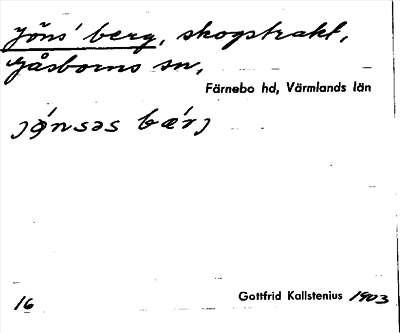 Jöns' berg, skogstrakt,
Gåsborns sn,
Färnebo hd, Värmlands län
jǿnsəs bæ´rj
Gottfrid Kallstenius 1903
16